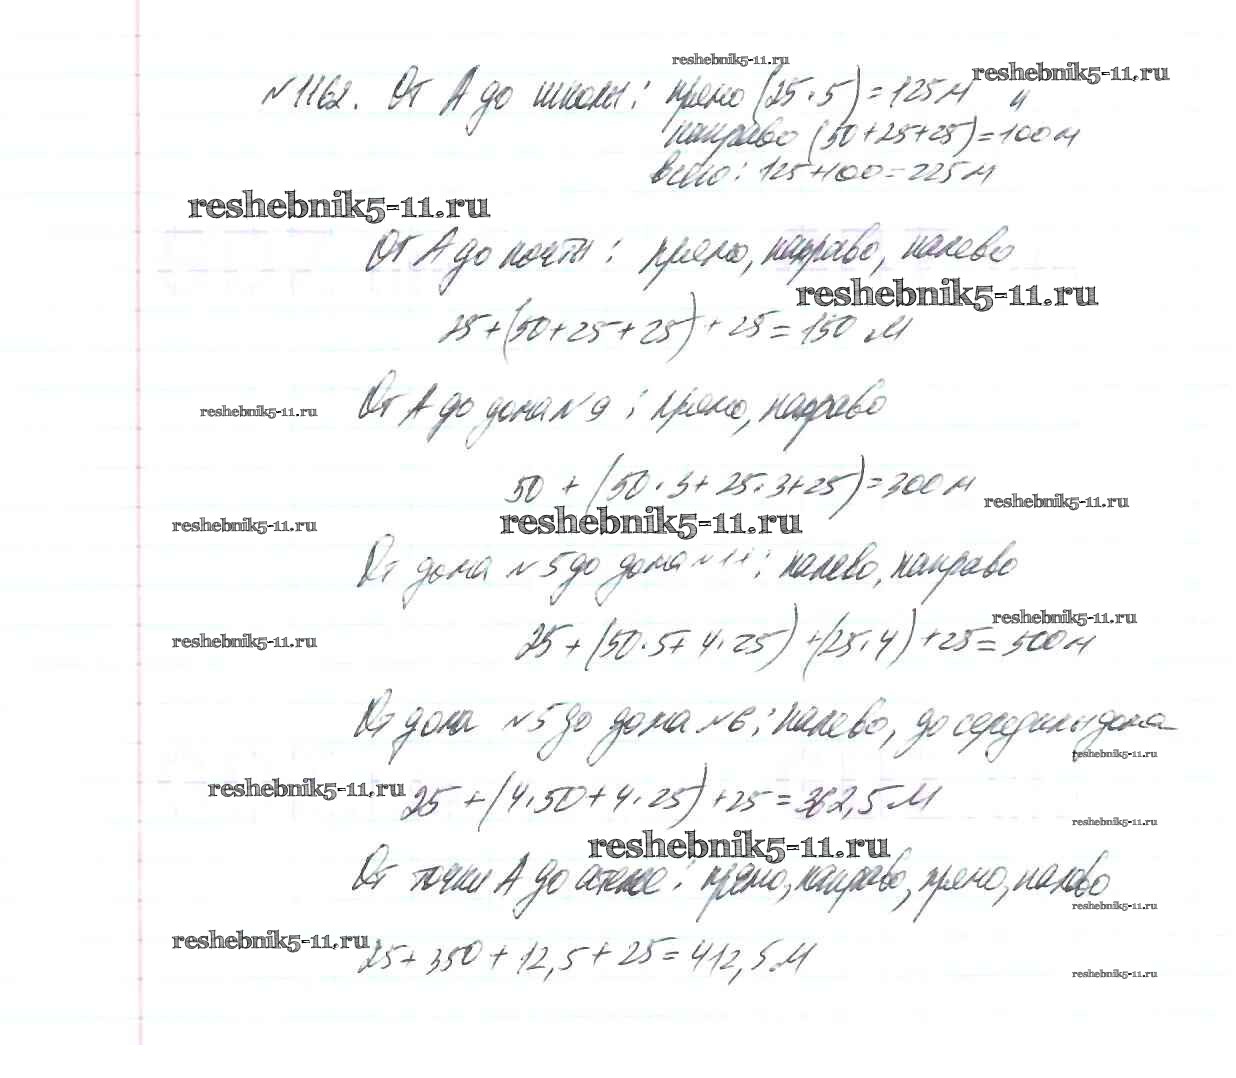 reshebnik5-11.ru
№1162. От А до школы: прямо (25·5)=125м и
reshebnik5-11.ru
направо (50+25+25)=100м
всего: 125+100=225м
reshebnik5-11.ru
От А до почты: прямо, направо, налево
reshebnik5-11.ru
25+(50+25+25)+25=150 м
reshebnik5-11.ru
От А до дома №9: прямо, направо
50+(50·3+25·3+25)=300м
reshebnik5-11.ru
reshebnik5-11.ru
reshebnik5-11.ru
От дома №5 до дома №11: налево, направо
reshebnik5-11.ru
reshebnik5-11.ru
25+(50·5+4·25)+(25·4)+25=500м
От дома №5 до дома №6: налево, до середины дома
reshebnik5-11.ru
reshebnik5-11.ru
25+(4·50+4·25)+25=362,5 м
reshebnik5-11.ru
reshebnik5-11.ru
От точки А до: прямо, направо, прямо, налево
reshebnik5-11.ru
reshebnik5-11.ru
25+350+12,5+25=412,5м
reshebnik5-11.ru